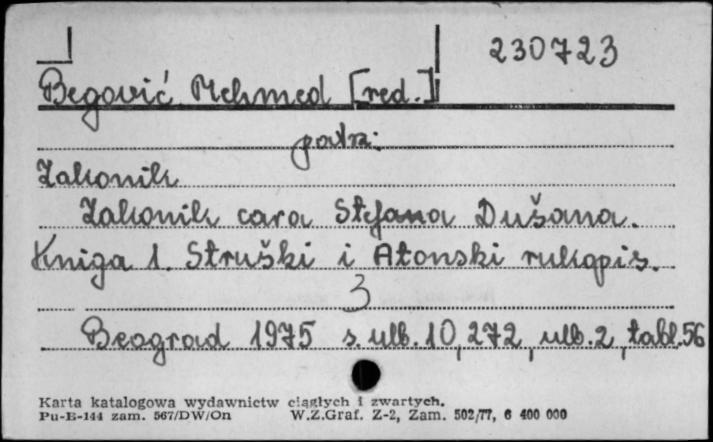 230723
Begović Mehmed [red.]
patrz:
Zakonik
Zakonik cara Stefana Dušana.
Kniga 1. Struški i Atonski rukopis.
3
Beograd 1975 s. ulb. 10, 272, ulb. 2, tabl. 56
Karta katalogowa wydawnictw ciągłych i zwartych.
Pu-E-144 zam. 567/DW/On W.Z.Graf. Z-2, Zam. 502/77, 6 400 000